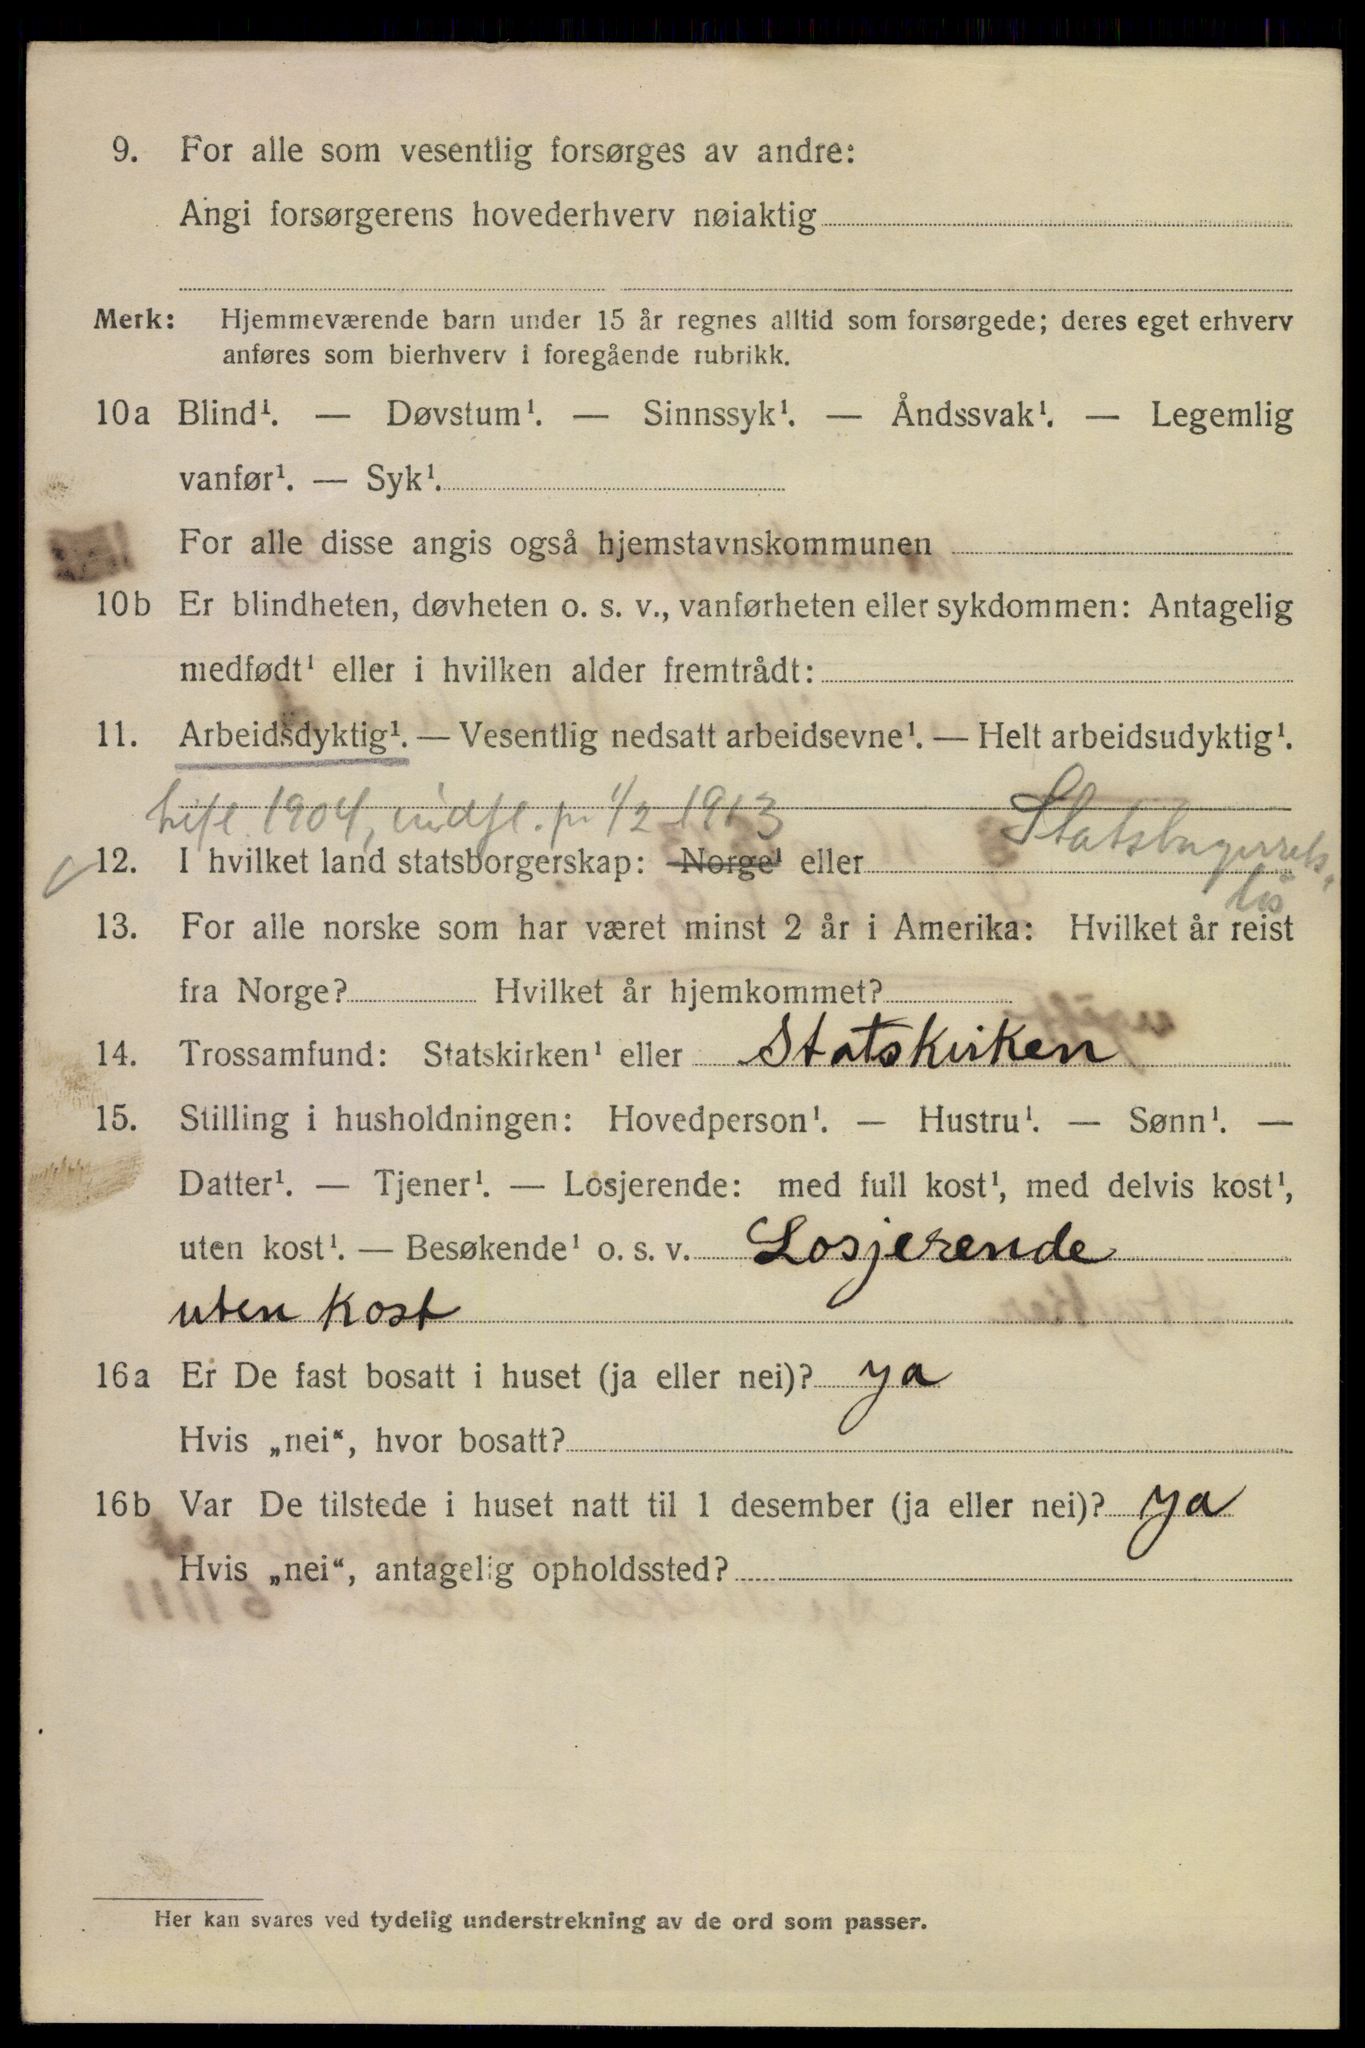 9. For alle som vesentlig forsørges av andre:
Angi forsørgerens hovederhverv nøiaktig
Merk: Hjemmeværende barn under 15 år regnes alltid som forsørgede; deres eget erhverv
anføres som bierhverv i foregående rubrikk.
10a Blind¹. — Døvstum¹. — Sinnssyk¹. — Åndssvak¹. — Legemlig
vanfør¹. — Syk¹.
For alle disse angis også hjemstavnskommunen
10b Er blindheten, døvheten o. s. v., vanførheten eller sykdommen: Antagelig
medfødt¹ eller i hvilken alder fremtrådt:
11. Arbeidsdyktig¹. — Vesentlig nedsatt arbeidsevne¹. — Helt arbeidsudyktig¹.
1904, indfl. 1/2 1913
12. I hvilket land statsborgerskap: Norge¹ eller Statsborgerrets-
løs
13. For alle norske som har været minst 2 år i Amerika: Hvilket år reist
fra Norge? Hvilket år hjemkommet?
14. Trossamfund: Statskirken¹ eller Statskirken
15. Stilling i husholdningen: Hovedperson¹. — Hustru¹. — Sønn¹. —
Datter¹. — Tjener¹. — Losjerende: med full kost¹, med delvis kost¹,
uten kost¹. — Besøkende¹ o. s. v. Losjerende
uten kost
16a Er De fast bosatt i huset (ja eller nei)? ya
Hvis „nei“, hvor bosatt?
16b Var De tilstede i huset natt til 1 desember (ja eller nei)? ya
Hvis „nei“, antagelig opholdssted?
Her kan svares ved tydelig understrekning av de ord som passer.